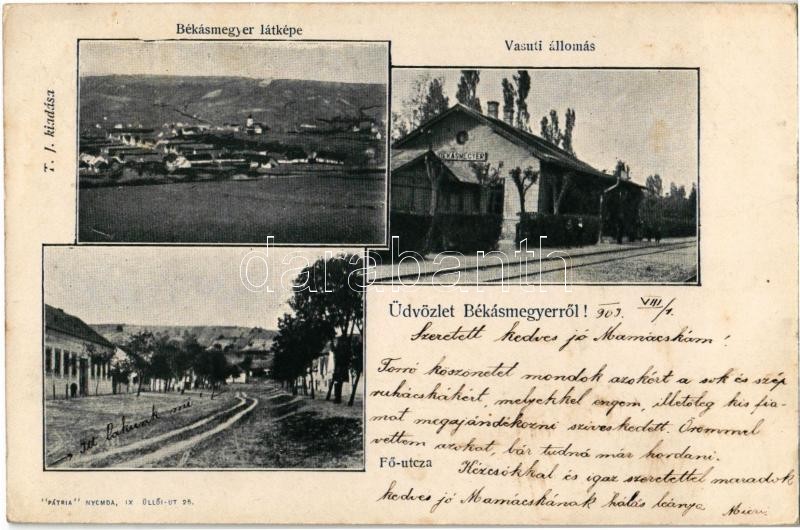 Békásmegyer látképe
Vasuti állomás
T. J. kiadása
BÉKÁSMEGYER
darabanth
Üdvözlet Békásmegyerről! 903. VIII/1.
Szeretett kedves jó Mamácskám!
Forró köszönetet mondok azokért a sok és szép
ruhácskákért, melyekkel engem, illetőleg kis fia-
mat megajándékozni sziveskedett. Örömmel
vettem azokat, bár tudná már hordani.
Kézcsókkal és igaz szeretettel maradok
kedves jó Mamácskának hálás leánya
itt lakunk mi!
Fő-utcza
"PÁTRIA" NYOMDA, IX ÜLLŐI-UT 25.